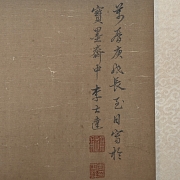 萬曆庚戌長至日寫於
寶墨齋中李士達